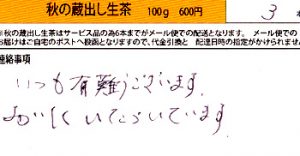 秋の蔵出し生茶 100g 600円 3
※秋の蔵出し生茶はサービス品の為6本までがメール便での配送となります。 メール便での
お届けはご自宅のポストへ投函となりますので、代金引換と 配達日時の指定がかけられませ
連絡事項
いつも有難うございます。
おいしくいただいています。